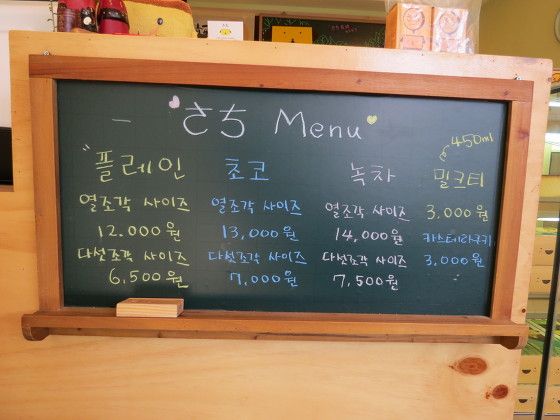 さち Menu
플레인
열조각 사이즈
12.000원
다섯조각 사이즈
6,500원
초코
열조각 사이즈
13,000원
다섯조각 사이즈
7,000원
녹차
열조각 사이즈
14,000원
다섯조각 사이즈
7,500원
450ml
밀크티
3,000원
카스테라쿠키
3,000원